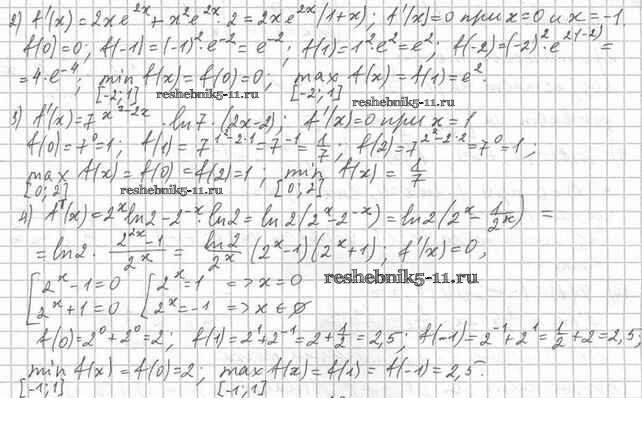 2) f'(x)=2xe^{2x}+x²e^{2x}·2=2xe^{2x}(1+x); f'(x)=0 при x=0 и x=-1.
f(0)=0; f(-1)=(-1)²·e^{-2}=e^{-2}; f(1)=1²·e²=e²; f(-2)=(-2)²·e^{2(-2)}=
=4·e^{-4}; min f(x)=f(0)=0; max f(x)=f(1)=e².
[-2;1] reshebnik5-11.ru [-2;1] reshebnik5-11.ru
3) f'(x)=7^{x²-2x}·ln7·(2x-2); f'(x)=0 при x=1
f(0)=7⁰=1; f(1)=7^{1²-2·1}=7^{-1}=1/7; f(2)=7^{2²-2·2}=7⁰=1;
max f(x)=f(0)=f(2)=1; min f(x)=1/7
[0;2] reshebnik5-11.ru [0;2]
4) f'(x)=2^x ln2-2^{-x}·ln2=ln2(2^x-2^{-x})=ln2(2^x-1/2^x)=
=ln2·(2^{2x}-1)/2^x=ln2/2^x(2^x-1)(2^x+1); f'(x)=0,
[2^x-1=0 [2^x=1 => x=0
[2^x+1=0 [2^x=-1 => x∈∅
reshebnik5-11.ru
f(0)=2⁰+2⁰=2; f(1)=2¹+2^{-1}=2+1/2=2,5; f(-1)=2^{-1}+2¹=1/2+2=2,5;
min f(x)=f(0)=2; max f(x)=f(1)=f(-1)=2,5.
[-1;1] [-1;1]